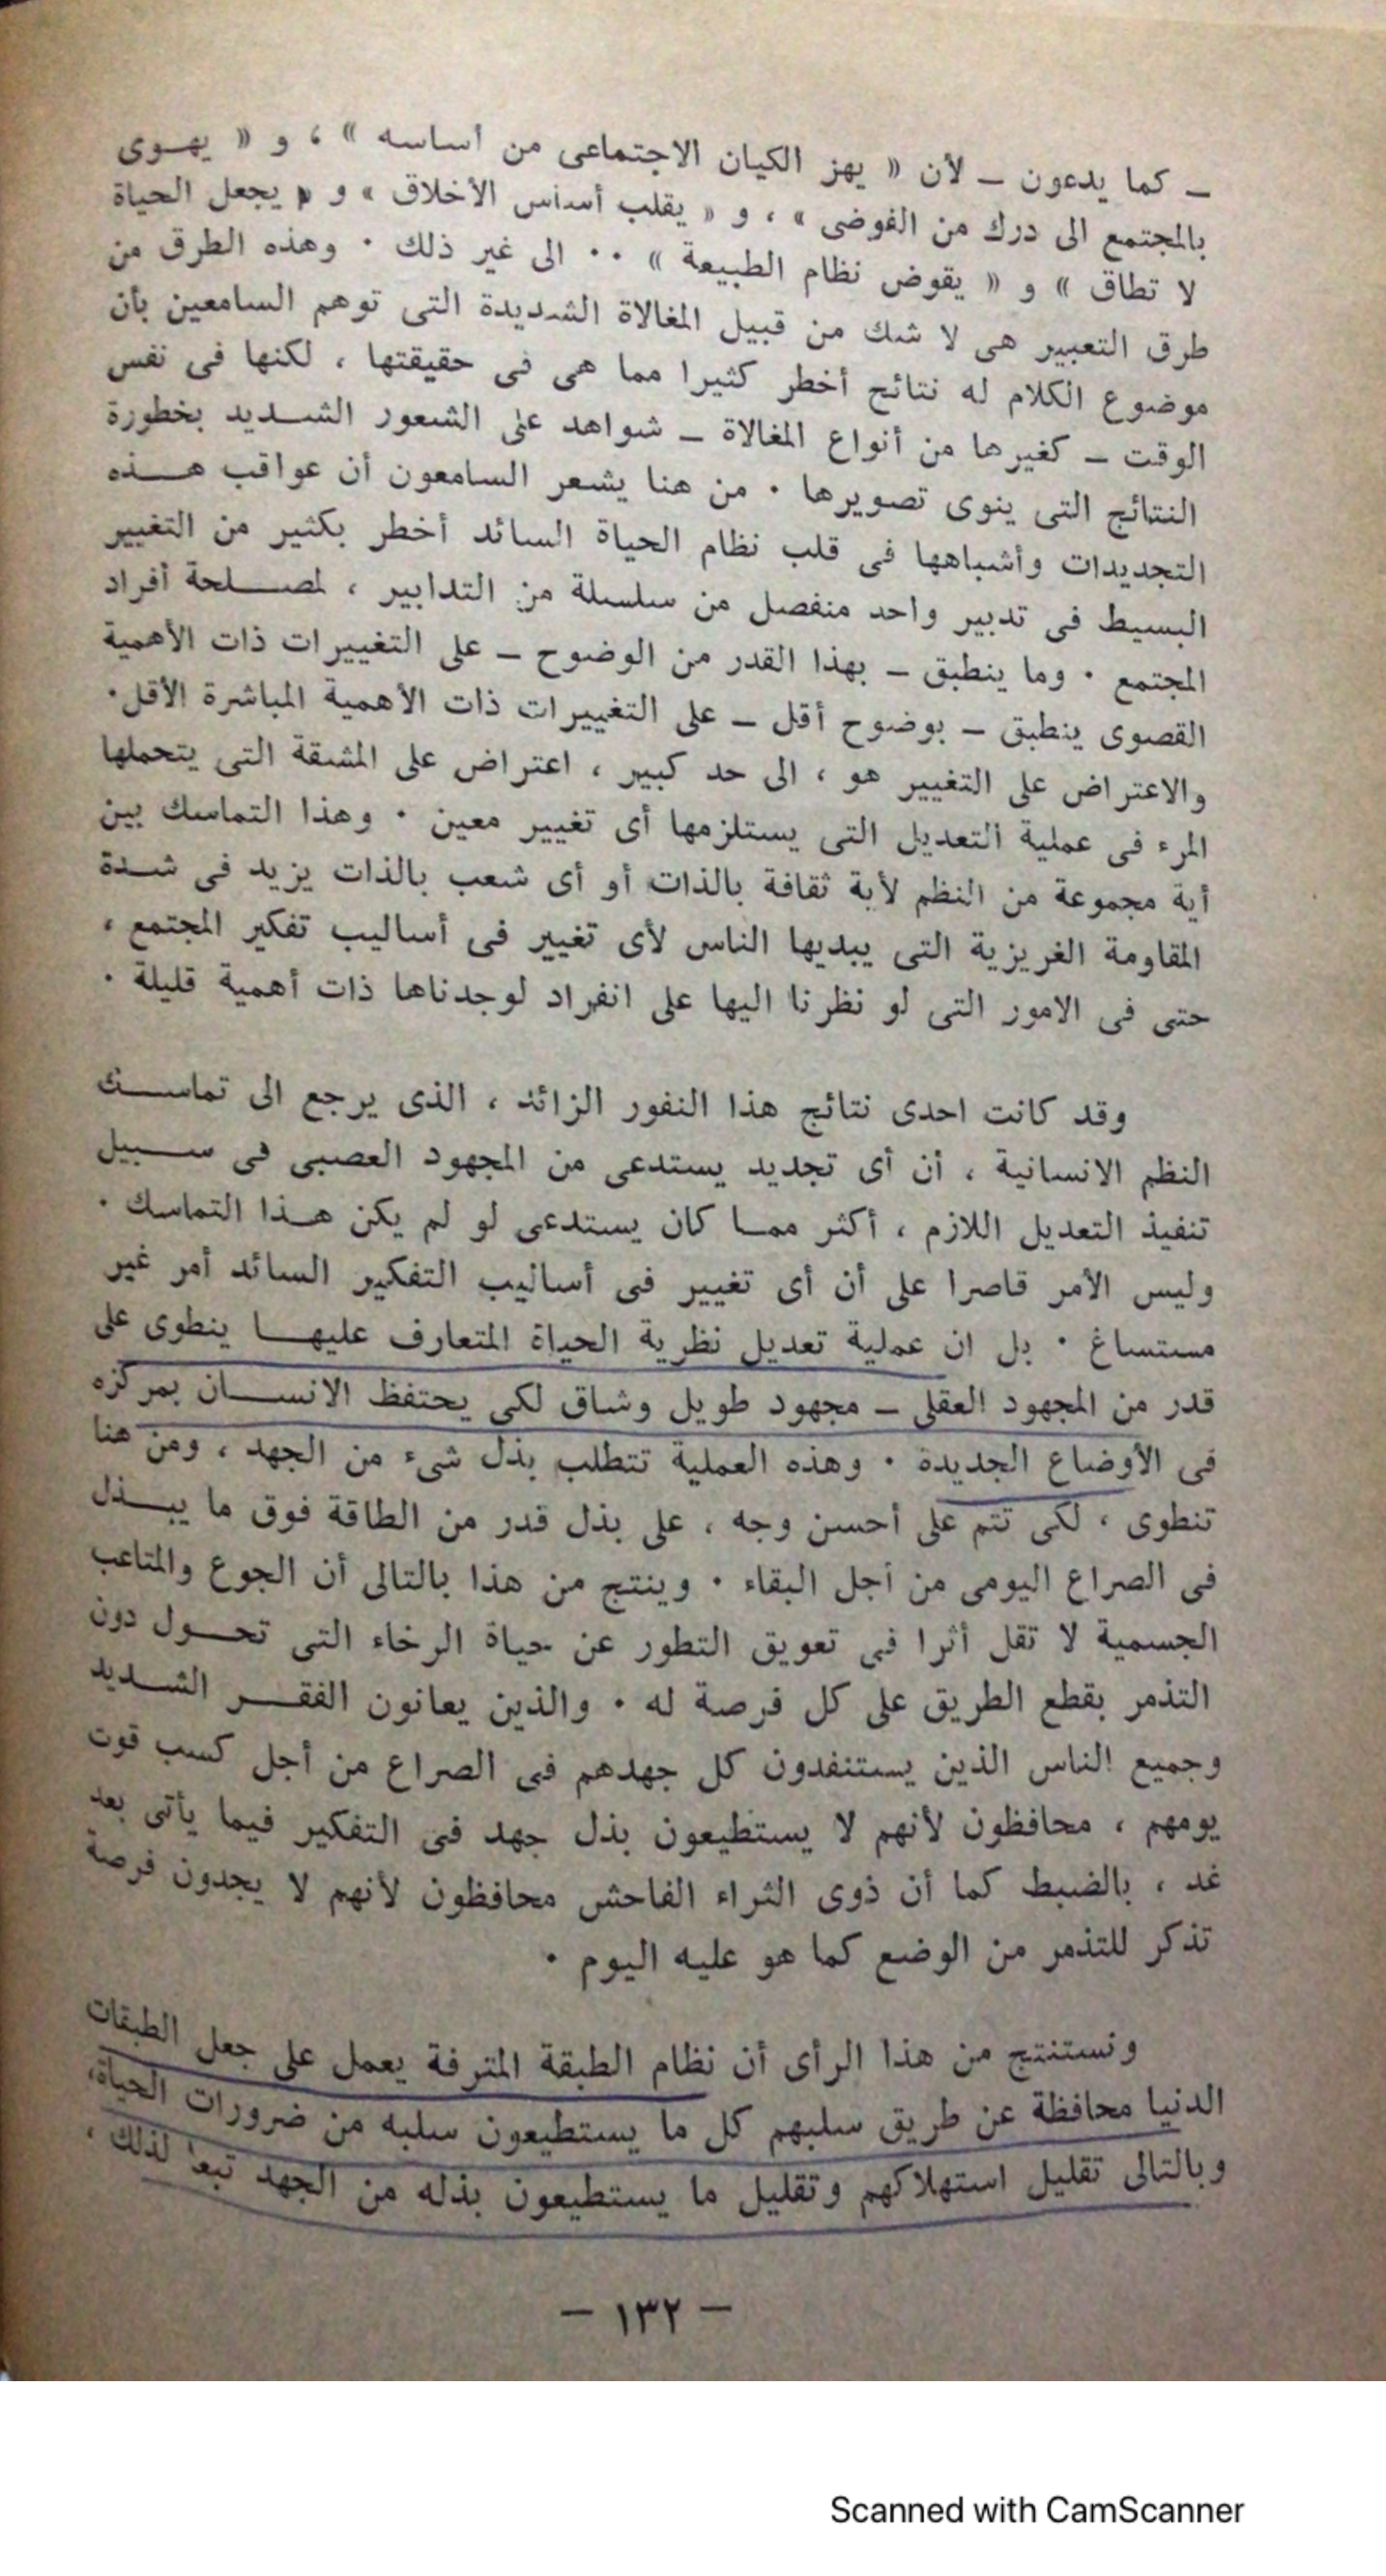 ـ كما يدعون ـ لأن « يهز الكيان الاجتماعى من أساسه » ، و « يهوى
بالمجتمع الى درك من الفوضى » ، و « يقلب أساس الأخلاق » و « يجعل الحياة
لا تطاق » و « يقوض نظام الطبيعة » ٠٠ الى غير ذلك ٠ وهذه الطرق من
طرق التعبير هى لا شك من قبيل المغالاة الشديدة التى توهم السامعين بأن
موضوع الكلام له نتائج أخطر كثيرا مما هى فى حقيقتها ، لكنها فى نفس
الوقت ـ كغيرها من أنواع المغالاة ـ شواهد على الشعور الشديد بخطورة
النتائج التى ينوى تصويرها ٠ من هنا يشعر السامعون أن عواقب هذه
التجديدات وأشباهها فى قلب نظام الحياة السائد أخطر بكثير من التغيير
البسيط فى تدبير واحد منفصل من سلسلة من التدابير ، لمصلحة أفراد
المجتمع ٠ وما ينطبق ـ بهذا القدر من الوضوح ـ على التغييرات ذات الأهمية
القصوى ينطبق ـ بوضوح أقل ـ على التغييرات ذات الأهمية المباشرة الأقل٠
والاعتراض على التغيير هو ، الى حد كبير ، اعتراض على المشقة التى يتحملها
المرء فى عملية التعديل التى يستلزمها أى تغيير معين ٠ وهذا التماسك بين
أية مجموعة من النظم لأية ثقافة بالذات أو أى شعب بالذات يزيد فى شدة
المقاومة الغريزية التى يبديها الناس لأى تغيير فى أساليب تفكير المجتمع ،
حتى فى الامور التى لو نظرنا اليها على انفراد لوجدناها ذات أهمية قليلة ٠
وقد كانت احدى نتائج هذا النفور الزائد ، الذى يرجع الى تماسك
النظم الانسانية ، أن أى تجديد يستدعى من المجهود العصبى فى سبيل
تنفيذ التعديل اللازم ، أكثر مما كان يستدعى لو لم يكن هذا التماسك ٠
وليس الأمر قاصرا على أن أى تغيير فى أساليب التفكير السائد أمر غير
مستساغ ٠ بل ان عملية تعديل نظرية الحياة المتعارف عليها ينطوى على
قدر من المجهود العقلى ـ مجهود طويل وشاق لكى يحتفظ الانسان بمركزه
فى الأوضاع الجديدة ٠ وهذه العملية تتطلب بذل شىء من الجهد ، ومن هنا
تنطوى ، لكى تتم على أحسن وجه ، على بذل قدر من الطاقة فوق ما يبذل
فى الصراع اليومى من أجل البقاء ٠ وينتج من هذا بالتالى أن الجوع والمتاعب
الجسمية لا تقل أثرا فى تعويق التطور عن حياة الرخاء التى تحول دون
التذمر بقطع الطريق على كل فرصة له ٠ والذين يعانون الفقر الشديد
وجميع الناس الذين يستنفدون كل جهدهم فى الصراع من أجل كسب قوت
يومهم ، محافظون لأنهم لا يستطيعون بذل جهد فى التفكير فيما يأتى بعد
غد ، بالضبط كما أن ذوى الثراء الفاحش محافظون لأنهم لا يجدون فرصة
تذكر للتذمر من الوضع كما هو عليه اليوم ٠
ونستنتج من هذا الرأى أن نظام الطبقة المترفة يعمل على جعل الطبقات
الدنيا محافظة عن طريق سلبهم كل ما يستطيعون سلبه من ضرورات الحياة،
وبالتالى تقليل استهلاكهم وتقليل ما يستطيعون بذله من الجهد تبعا لذلك ،
ـ ١٣٢ ـ
Scanned with CamScanner